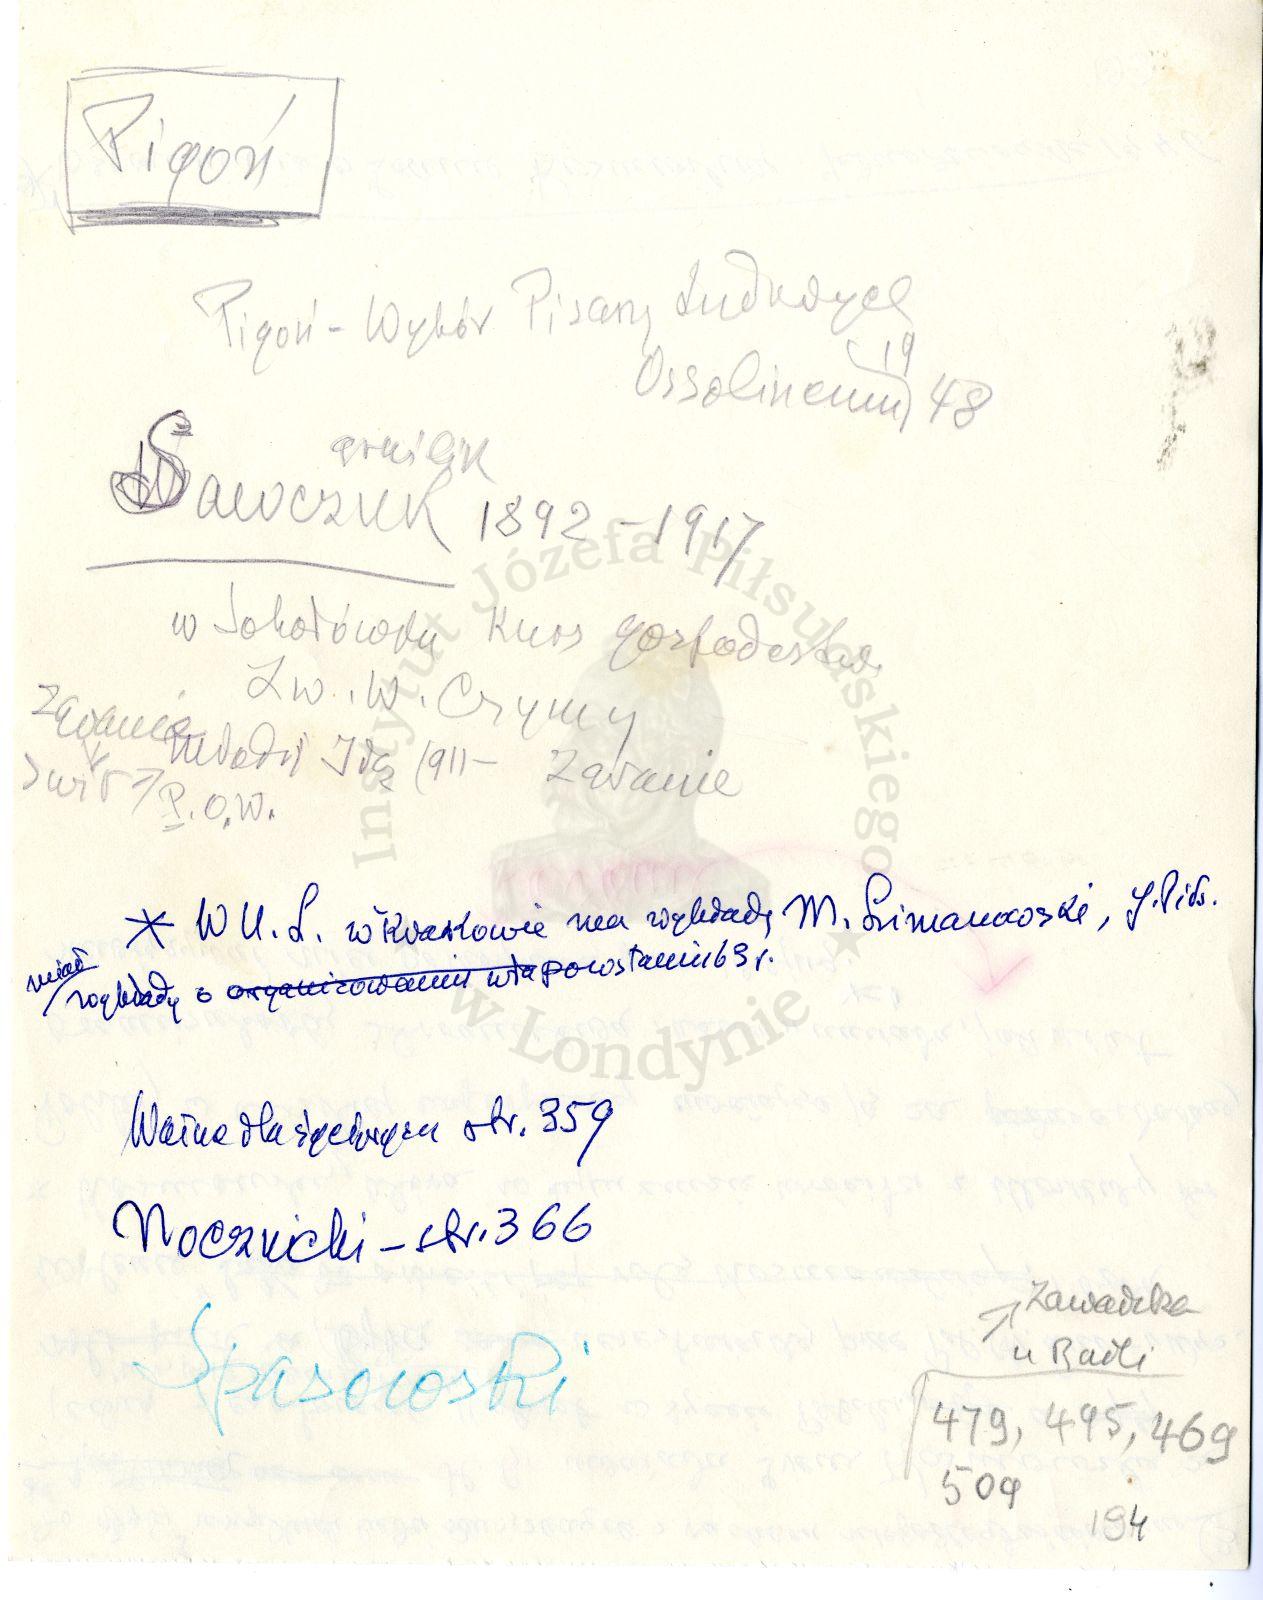 Pigoń
Pigoń - Wybór Pisarzy Ludowych
Ossolineum 1948
Sawczuk 1892-1917
w Sokołówku Kurs gospodarstw.
Zw. W. Czymy
Zaranie młodzi Idą 1911- Zaranie
Świt P.O.W.
Instytut Józefa Piłsudskiego
w Londynie
* W U.L. w Krakowie ma wykłady M. Limanowski, J. Piłs.
miał
wykłady o organizowaniu wła powstaniu 63 r.
Ważne dla życiorysu str. 359
Nocznicki - str. 366
Zawadzka
u Badli
Spasowski
479, 495, 469
509
194